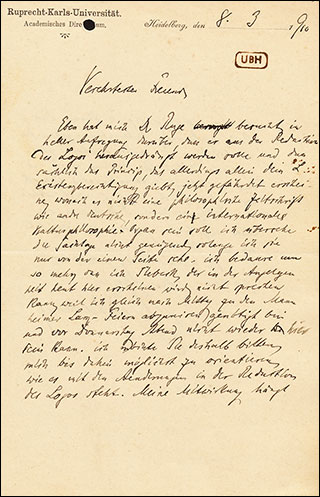 Ruprecht-Karls-Universität.
Academisches Direktorium.
Heidelberg, den 8. 3 1910
UBH
Verehrtester Freund,
Eben hat mich Dr Ruge besucht, in
heller Aufregung darüber, dass er aus der Redaktion
des Logos herausgedrängt werden solle und dass
das Princip, das allerdings allein dem L...
Existenzberechtigung giebt, jetzt gefährdet erschei-
ne, wonach es nicht eine philosophische Zeitschrift
wie andre deutsche, sondern ein internationales
Kulturphilosophie-Organ sein soll. Ich übersehe
die Sachlage nicht genügend, solange ich sie
nur von der einen Seite sehe. Ich bedaure um
so mehr, dass ich Siebeck, der in der
mit heut hier erscheinen wird, nicht sprechen
kann, weil ich gleich nach Mittag zu den Mann
heimer Lanz-Feiern abzureisen genötigt bin
und vor Donnerstag Abend nicht wieder hier
sein kann. Ich möchte Sie deshalb bitten,
mich bis dahin möglichst zu orientieren,
wie es mit den Aenderungen in der Redaktion
des Logos steht. Meine Mitwirkung hängt